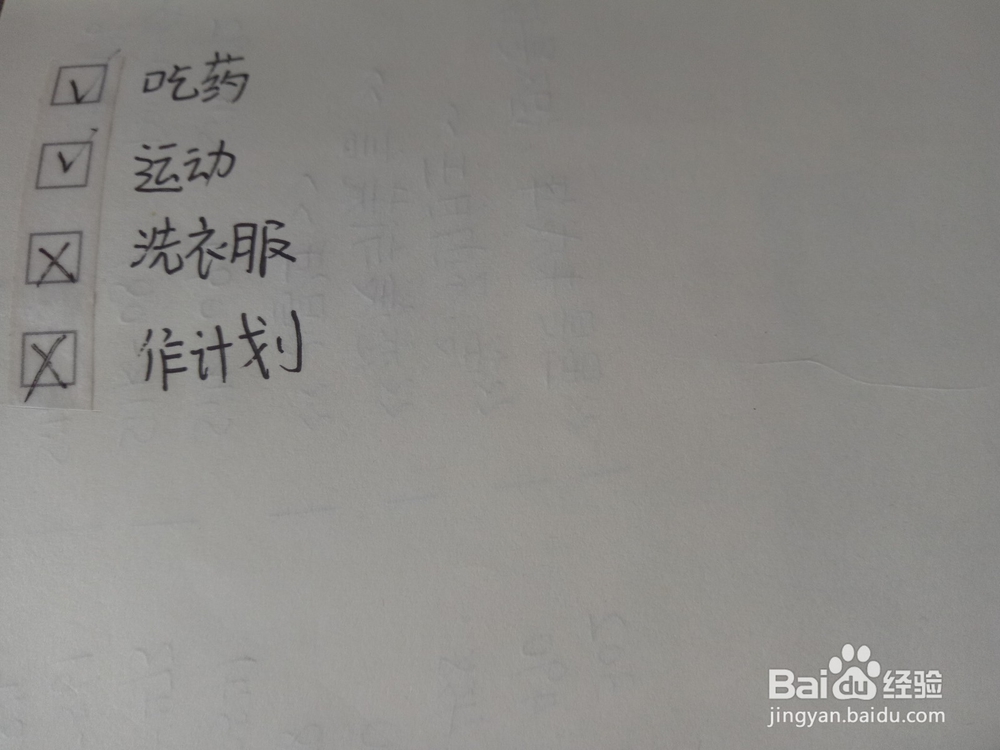 ☑ 吃药
☑ 运动
☒ 洗衣服
☒ 作计划
Baidu 经验
jingyan.baidu.com